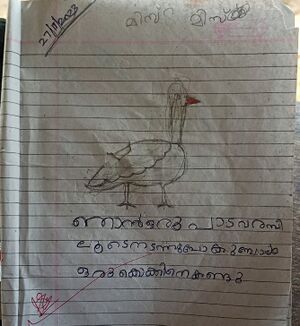 27/11/2023
മിസ്റ്റർ മിസ്റ്റർ
ഞാൻ ഒരു പാടവരമ്പി
ലൂടെ നടന്നുപോകുമ്പോൾ
ഒരു കൊക്കിനെ കണ്ടു.